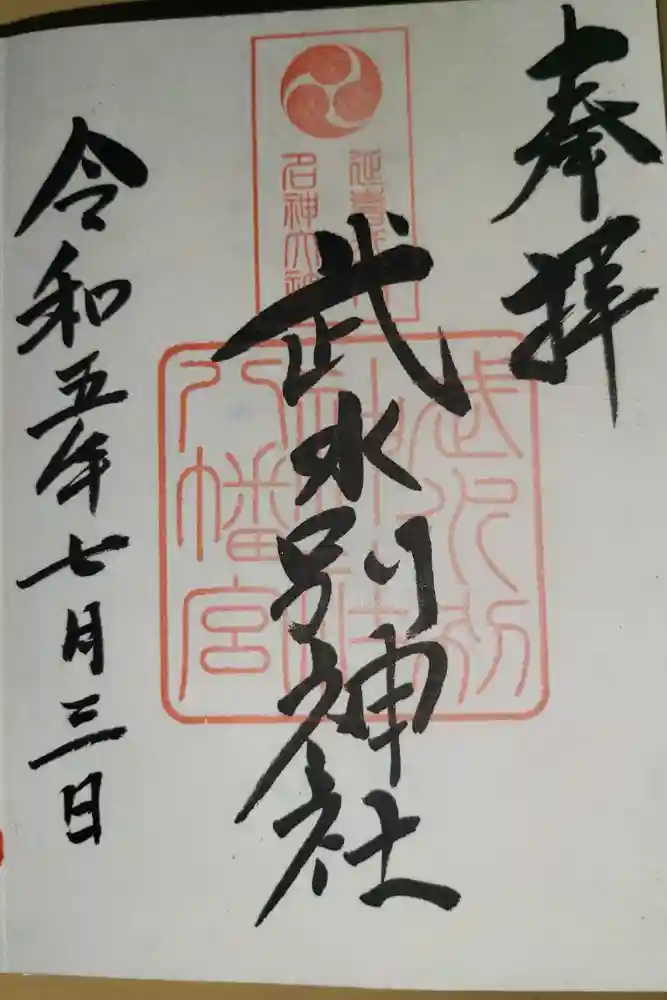 奉拝
延喜式
名神大神
武水別
神社
八幡宮
武水別神社
令和五年七月三日